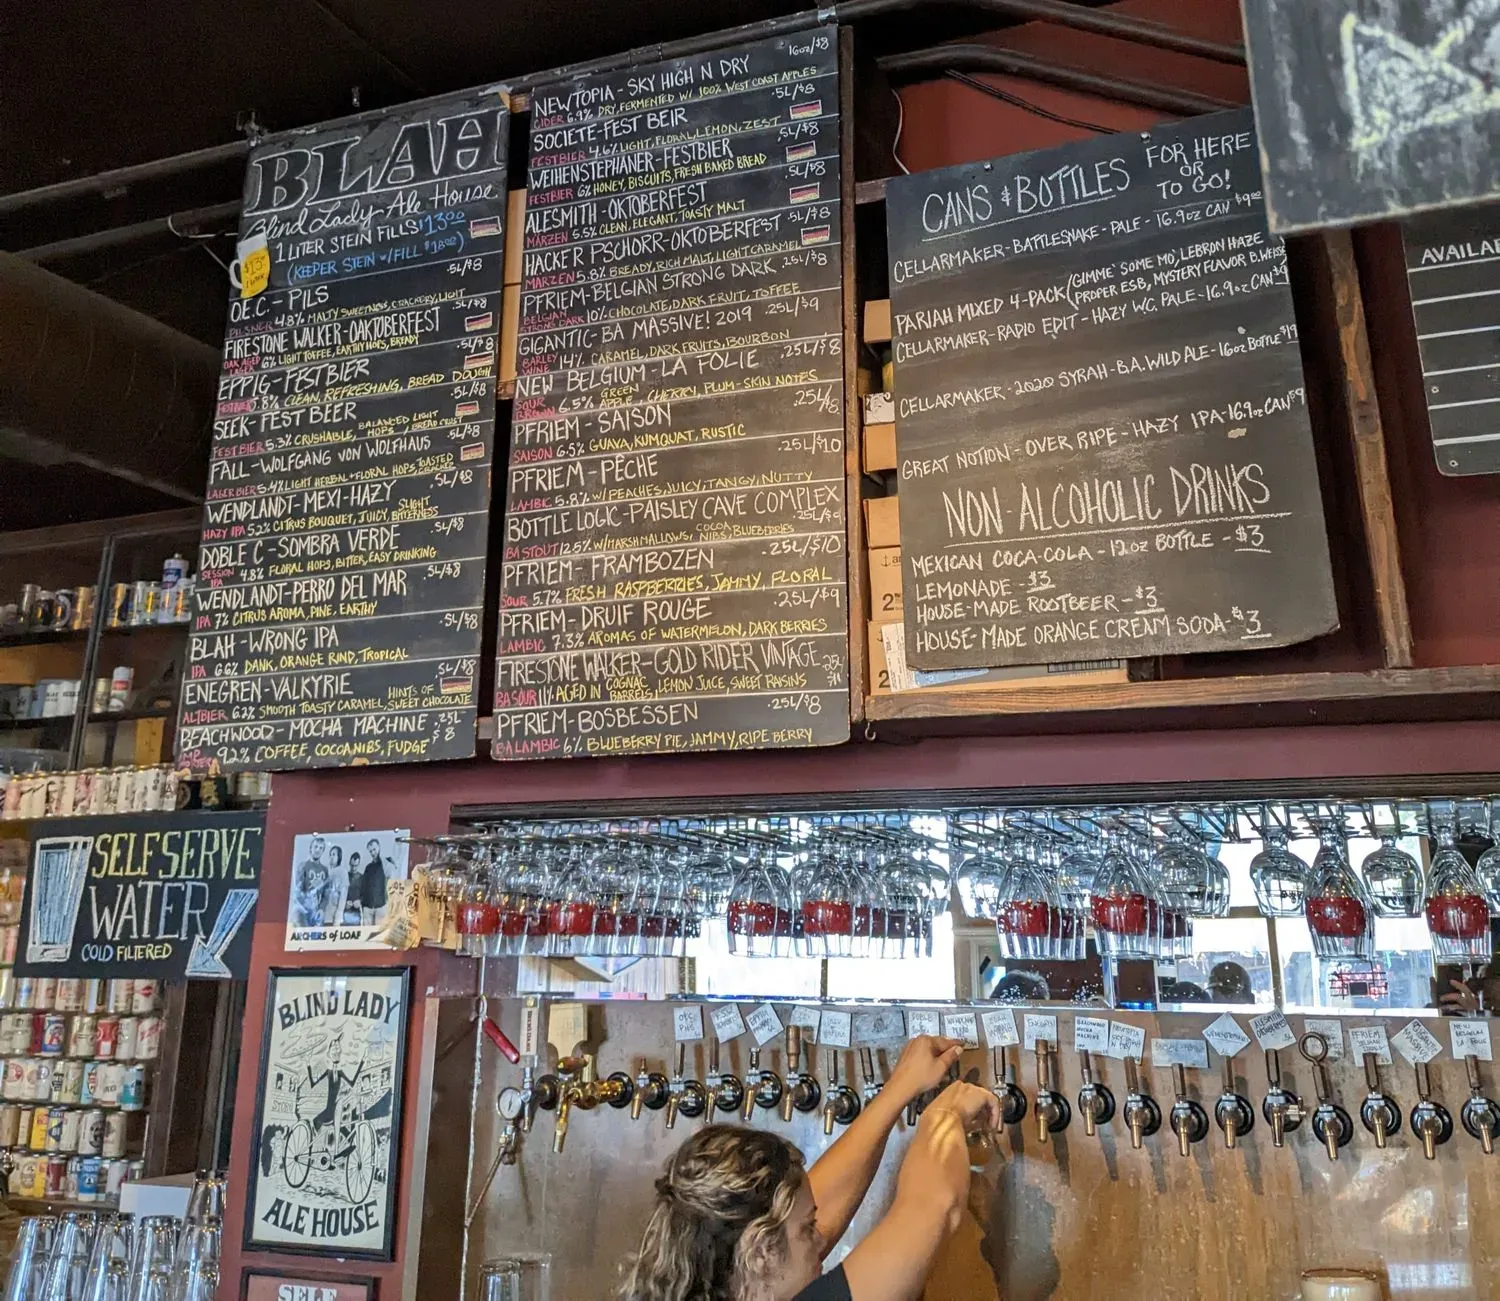 BLAH
Blind Lady Ale House
1 LITER STEIN FILLS $13.00
(KEEPER STEIN w/FILL $18.00)
$13
1 LITER
O.E.C. - PILS .5L/$8
PILSNER 4.8% MALTY SWEETNESS, CRACKERY, LIGHT
FIRESTONE WALKER-OAKTOBERFEST .5L/$8
OAK AGED LAGER 6% LIGHT TOFFEE, EARTHY HOPS, BREADY
EPPIG-FESTBIER .5L/$8
5.8% CLEAN, REFRESHING, BREAD DOUGH
SEEK-FEST BEER .5L/$8
FESTBIER 5.3% CRUSHABLE, BALANCED LIGHT HOPS, BREAD CRUST
FALL-WOLFGANG VON WOLFHAUS .5L/$8
LAGERBIER 5.4% LIGHT HERBAL+FLORAL HOPS, TOASTED CRACKER
WENDLANDT-MEXI-HAZY .5L/$8
HAZY IPA 5.2% CITRUS BOUQUET, JUICY, SLIGHT BITTERNESS
DOBLE C-SOMBRA VERDE .5L/$8
SESSION IPA 4.8% FLORAL HOPS, BITTER, EASY DRINKING
WENDLANDT-PERRO DEL MAR .5L/$8
IPA 7% CITRUS AROMA, PINE, EARTHY
BLAH-WRONG IPA .5L/$8
IPA 6.6% DANK, ORANGE RIND, TROPICAL
ENEGREN-VALKYRIE .5L/$8
ALTBIER 6.2% SMOOTH TOASTY CARAMEL, HINTS OF SWEET CHOCOLATE
BEACHWOOD-MOCHA MACHINE .25L $8
IMP. PORTER 9.2% COFFEE, COCOA NIBS, FUDGE
NEWTOPIA-SKY HIGH N DRY 16oz/$8
CIDER 6.9% DRY, FERMENTED W/ 100% WEST COAST APPLES
SOCIETE-FEST BEIR .5L/$8
FESTBIER 4.6% LIGHT, FLORAL, LEMON, ZEST
WEIHENSTEPHANER-FESTBIER .5L/$8
FESTBIER 6% HONEY, BISCUITS, FRESH BAKED BREAD
ALESMITH-OKTOBERFEST .5L/$8
MARZEN 5.5% CLEAN, ELEGANT, TOASTY MALT
HACKER PSCHORR-OKTOBERFEST .5L/$8
MARZEN 5.8% BREADY, RICH MALT, LIGHT CARAMEL
PFRIEM-BELGIAN STRONG DARK .25L/$8
BELGIAN STRONG DARK 10% CHOCOLATE, DARK FRUIT, TOFFEE
GIGANTIC-BA MASSIVE! 2019 .25L/$9
BARLEY WINE 14% CARAMEL, DARK FRUITS, BOURBON
NEW BELGIUM-LA FOLIE .25L/$8
SOUR BROWN 6.5% GREEN APPLE, CHERRY, PLUM-SKIN NOTES
PFRIEM-SAISON .25L/$8
SAISON 6.5% GUAVA, KUMQUAT, RUSTIC
PFRIEM-PÊCHE .25L/$10
LAMBIC 5.8% W/PEACHES, JUICY, TANGY, NUTTY
BOTTLE LOGIC-PAISLEY CAVE COMPLEX .25L/$9
BA STOUT 12.5% W/MARSHMALLOWS, COCOA NIBS, BLUEBERRIES
PFRIEM-FRAMBOZEN .25L/$10
SOUR 5.7% FRESH RASPBERRIES, JAMMY, FLORAL
PFRIEM-DRUIF ROUGE .25L/$9
LAMBIC 7.3% AROMAS OF WATERMELON, DARK BERRIES
FIRESTONE WALKER-GOLD RIDER VINTAGE .25L $11
BA SOUR 11% AGED IN COGNAC BARRELS, LEMON JUICE, SWEET RAISINS
PFRIEM-BOSBESSEN .25L/$8
BA LAMBIC 6% BLUEBERRY PIE, JAMMY, RIPE BERRY
CANS & BOTTLES FOR HERE OR TO GO!
CELLARMAKER-BATTLESNAKE-PALE-16.9oz CAN $9.00
PARIAH MIXED 4-PACK (GIMME' SOME MO', LEBRON HAZE,
PROPER ESB, MYSTERY FLAVOR B.WEISSE
CELLARMAKER-RADIO EDIT-HAZY W.C. PALE-16.9oz CAN
CELLARMAKER-2020 SYRAH-B.A. WILD ALE-16oz BOTTLE $19
GREAT NOTION-OVER RIPE-HAZY IPA-16.9oz CAN $9
NON-ALCOHOLIC DRINKS
MEXICAN COCA-COLA-12oz BOTTLE-$3
LEMONADE-$3
HOUSE-MADE ROOTBEER-$3
HOUSE-MADE ORANGE CREAM SODA-$3
AVAILA
SELF SERVE
WATER
COLD FILTERED
ARCHERS of LOAF
BLIND LADY
ALE HOUSE
SELF